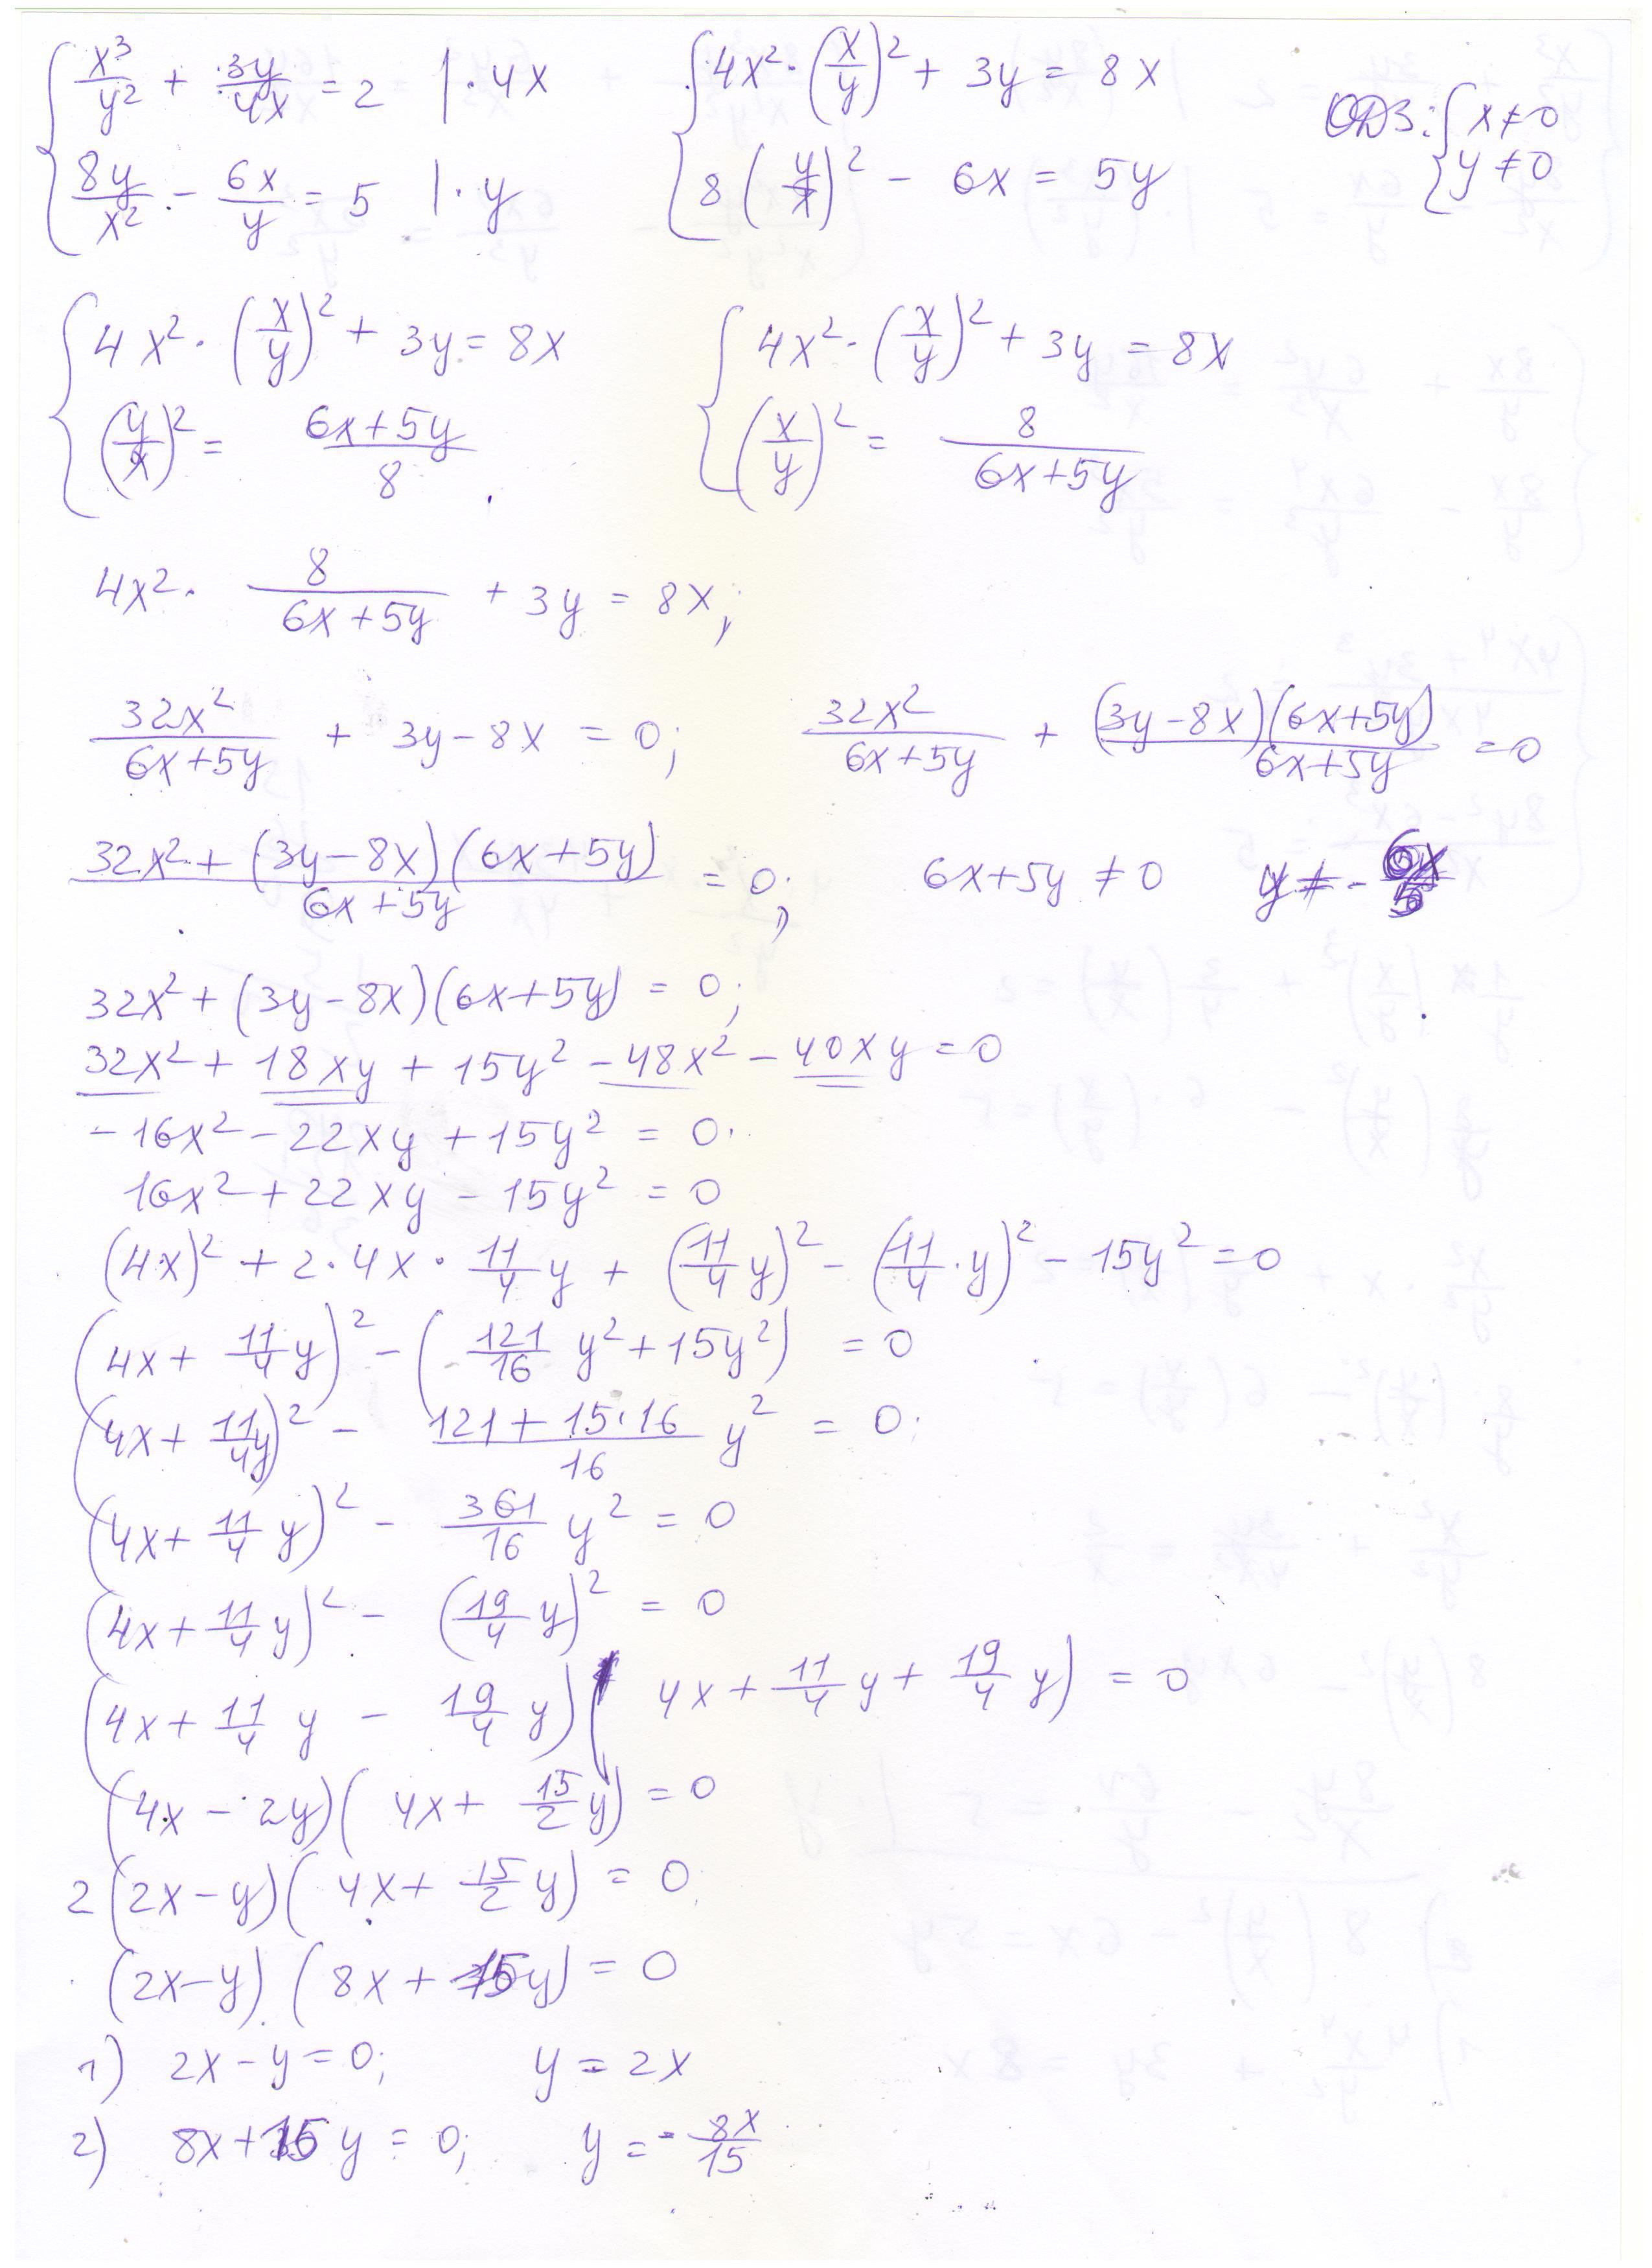 { x³/y² + 3y/4x = 2 | · 4x
{ 8y/x² - 6x/y = 5 | · y
{ 4x² · (x/y)² + 3y = 8x
{ 8 (y/x)² - 6x = 5y
ОДЗ: { x ≠ 0
{ y ≠ 0
{ 4x² · (x/y)² + 3y = 8x
{ (y/x)² = (6x+5y)/8
{ 4x² · (x/y)² + 3y = 8x
{ (x/y)² = 8/(6x+5y)
4x² · 8/(6x+5y) + 3y = 8x;
32x²/(6x+5y) + 3y - 8x = 0; 32x²/(6x+5y) + (3y-8x)(6x+5y)/(6x+5y) = 0
(32x² + (3y-8x)(6x+5y))/(6x+5y) = 0; 6x+5y ≠ 0 y ≠ - 6x/5
32x² + (3y-8x)(6x+5y) = 0;
32x² + 18xy + 15y² - 48x² - 40xy = 0
- 16x² - 22xy + 15y² = 0
16x² + 22xy - 15y² = 0
(4x)² + 2·4x · 11/4 y + (11/4 y)² - (11/4 · y)² - 15y² = 0
(4x + 11/4 y)² - (121/16 y² + 15y²) = 0
(4x + 11/4 y)² - (121 + 15·16)/16 y² = 0
(4x + 11/4 y)² - 361/16 y² = 0
(4x + 11/4 y)² - (19/4 y)² = 0
(4x + 11/4 y - 19/4 y)(4x + 11/4 y + 19/4 y) = 0
(4x - 2y)(4x + 15/2 y) = 0
2(2x - y)(4x + 15/2 y) = 0
(2x-y) (8x + 15y) = 0
1) 2x - y = 0; y = 2x
2) 8x + 15y = 0; y = - 8x/15